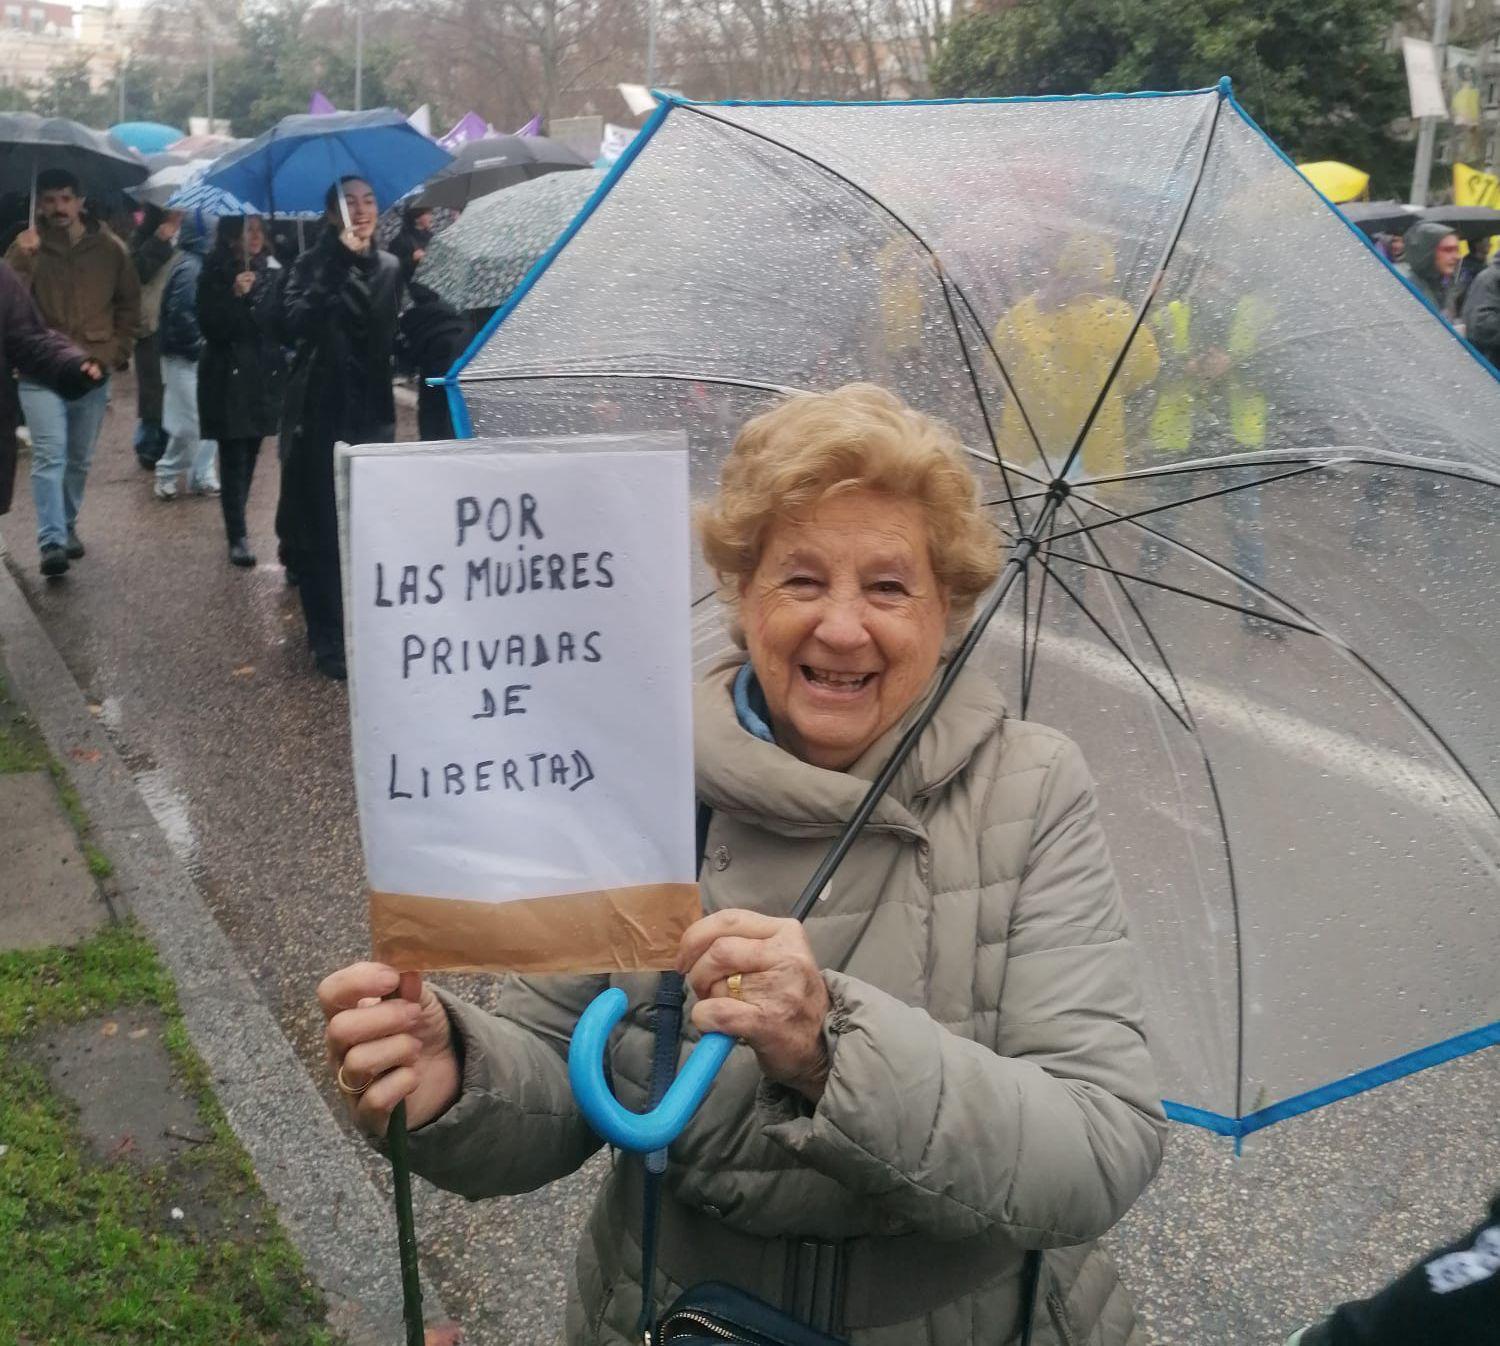 POR
LAS MUJERES
PRIVADAS
DE
LIBERTAD